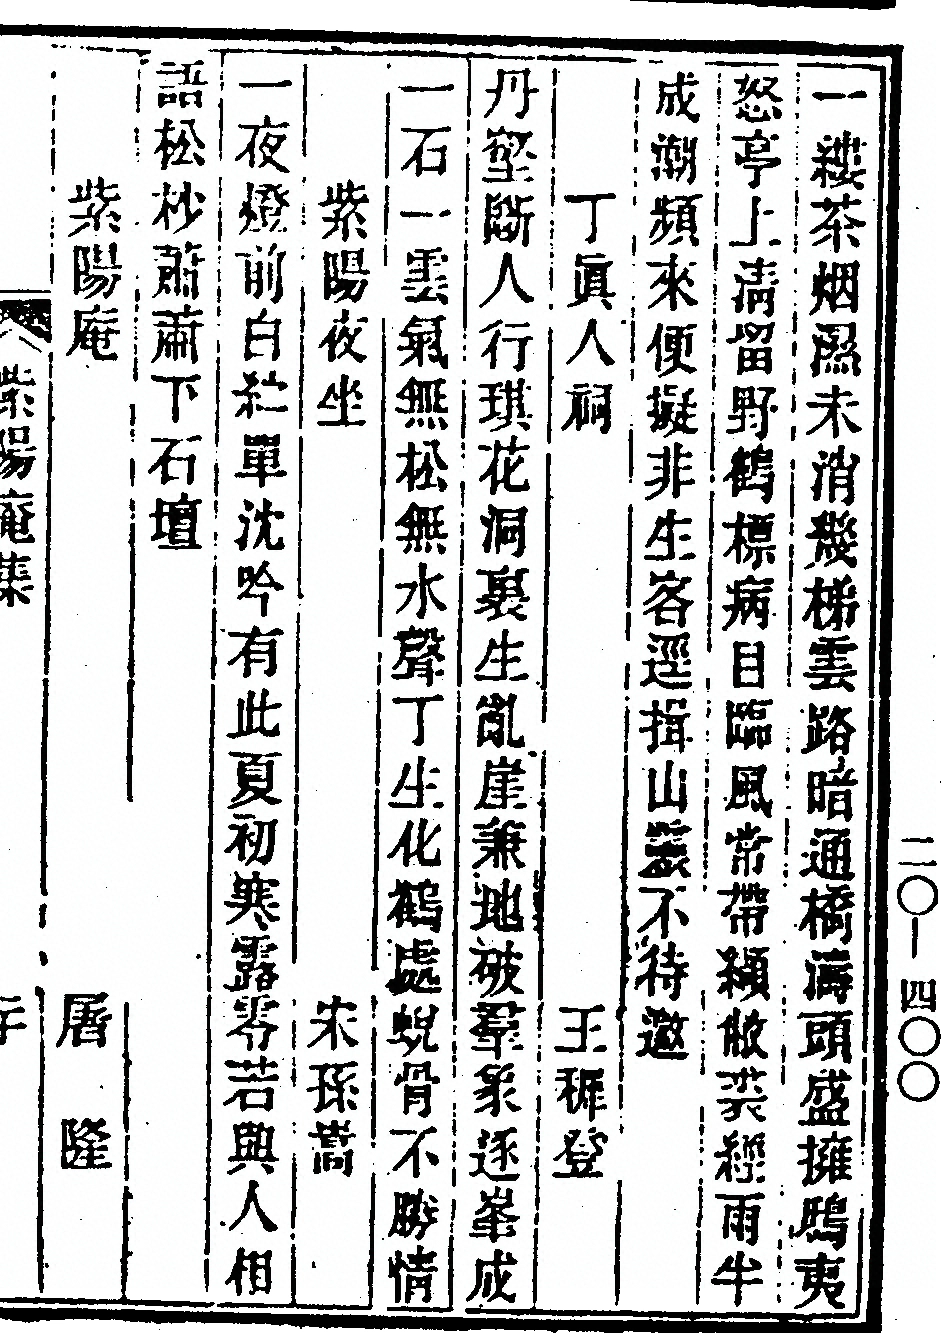 一縷茶烟濕未消幾梯雲路暗通橋濤頭盛擁鴟夷
怒亭上清留野鶴標病目臨風常帶纈敝裘經雨半
成潮頻來便擬非生客逕揖山叢不待邀
丁眞人祠 王穉登
丹壑斷人行琪花洞裏生亂崖兼地破羣象逐峯成
一石一雲氣無松無水聲丁生化鶴處蛻骨不勝情
紫陽夜坐 宋孫嵩
一夜燈前白紵單沈吟有此夏初寒露零若與人相
語松杪蕭蕭下石壇
紫陽庵 屠隆
紫陽庵集
二〇—四〇〇